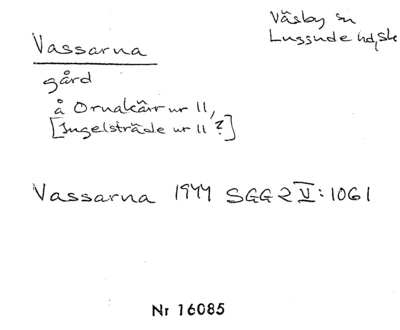 Väsby sn
Luggude hd, Sk
Vassarna
gård
å Ornakärr nr 11,
[Ingelsträde nr 11 ?]
Vassarna 1977 SGG 2 V:1061
Nr 16085